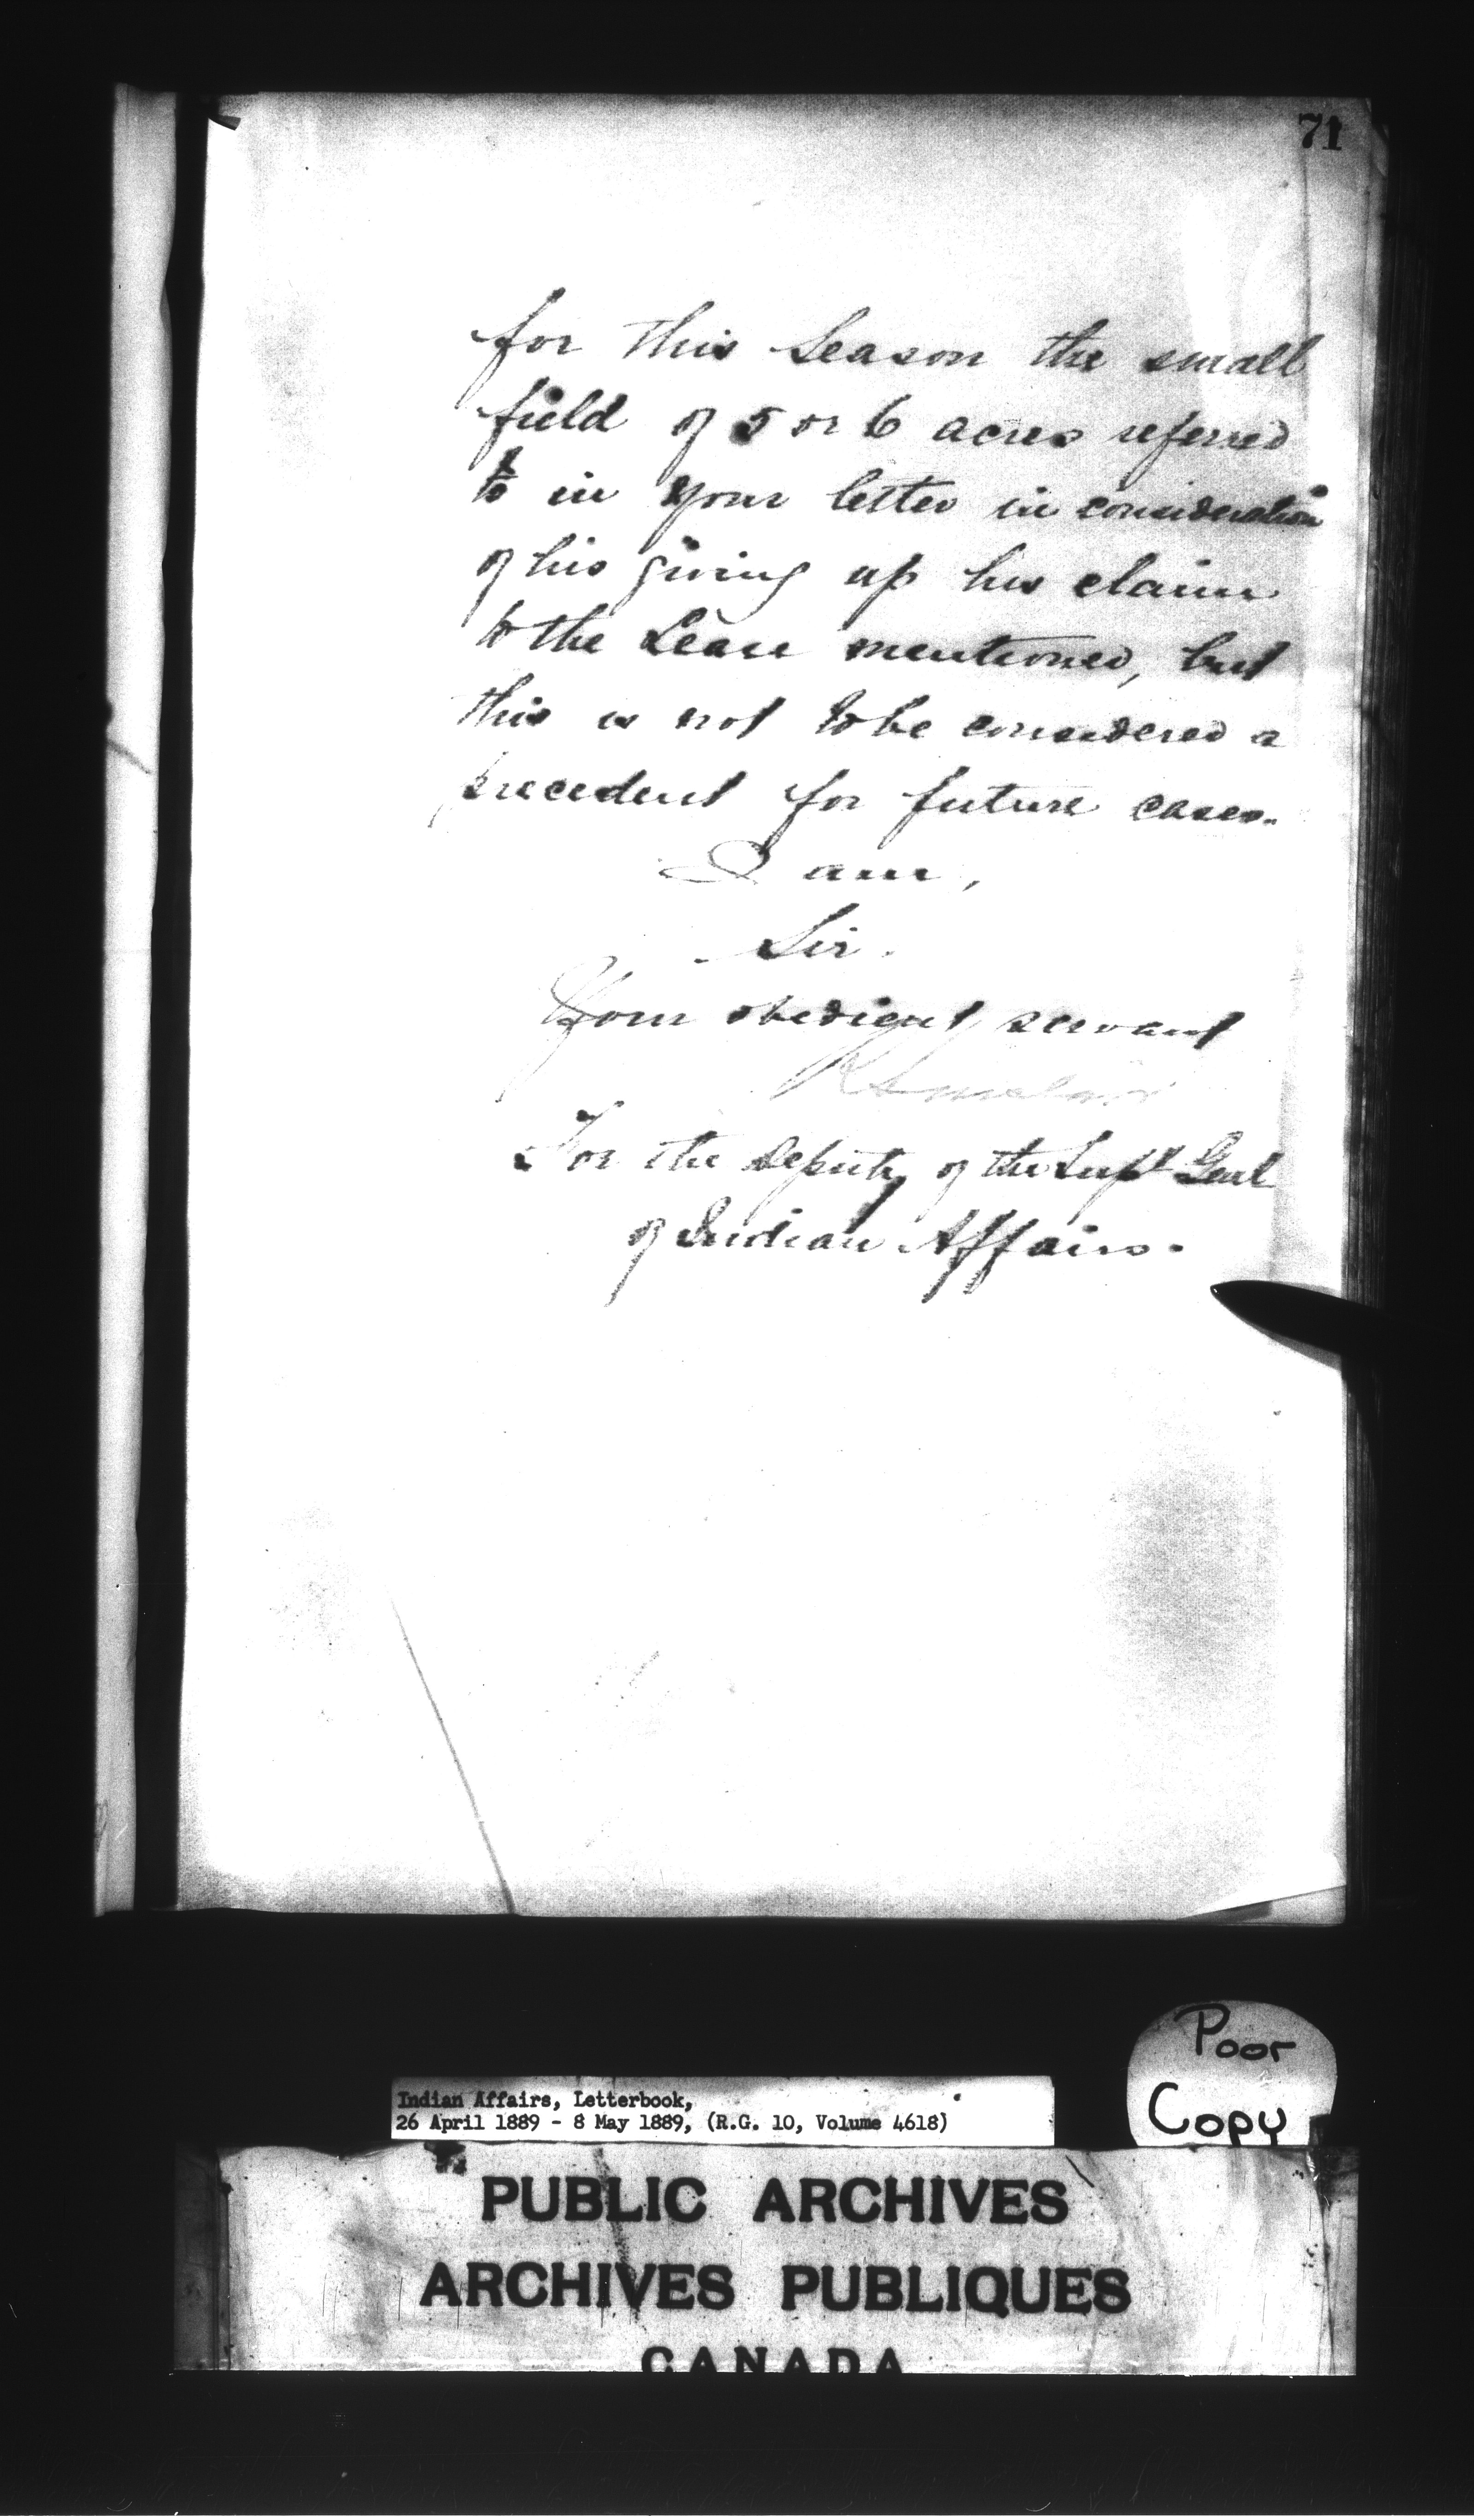 71
for this Season the small
field of 5 or 6 acres referred
to in your letter in consideration
of his giving up his claim
to the Lease mentioned, but
this is not to be considered a
precedent for future cases.
I am,
Sir.
Your obedient servant
R Sinclair
For the Deputy of the Supt Genl
of Indian Affairs.
Poor
Copy
Indian Affairs, Letterbook,
26 April 1889 - 8 May 1889, (R.G. 10, Volume 4618)
PUBLIC ARCHIVES
ARCHIVES PUBLIQUES
CANADA